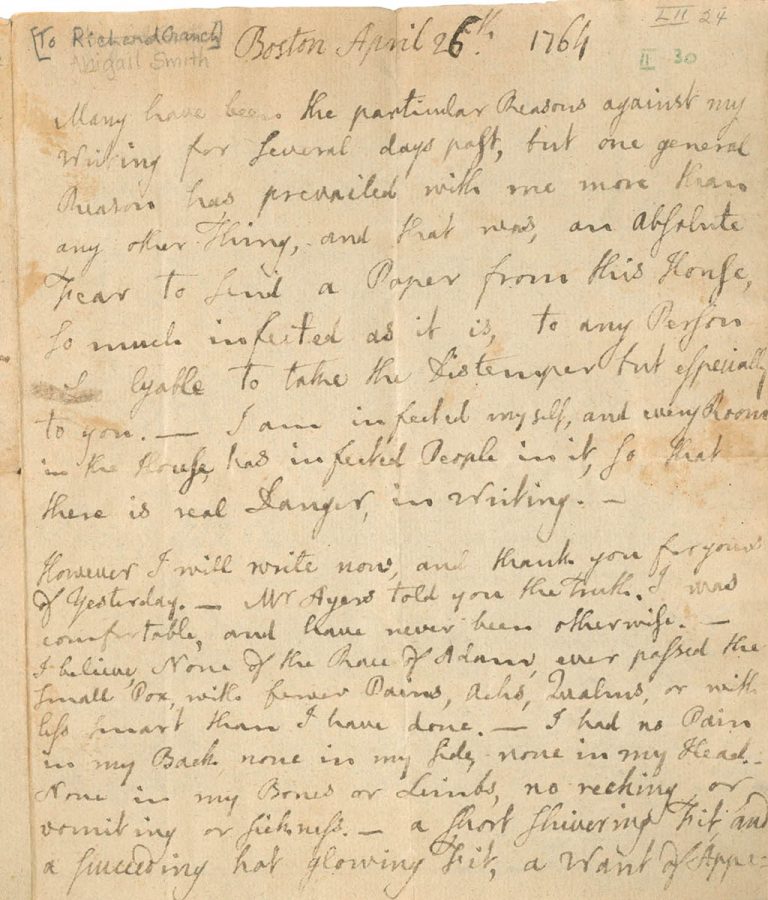 [To Richard Cranch]
Abigail Smith
LII 24
II 30
Boston April 26th. 1764
Many have been the particular Reasons against my
Writing for several days past, but one general
Reason has prevailed with me more than
any other Thing, and that was, an Absolute
Fear to send a Paper from this House,
so much infected as it is, to any Person
lyable to take the Distemper but especially
to you. — I am infected myself, and every Room
in the House, has infected People in it, so that
there is real Danger, in Writing. —
However I will write now, and thank you for yours
of Yesterday. — Mr Ayers told you the Truth. I was
comfortable, and have never been otherwise. —
I believe, None of the Race of Adam, ever passed the
small Pox, with fewer Pains, Achs, Qualms, or with
less smart than I have done. — I had no Pain
in my Back, none in my side, none in my Head.
None in my Bones or Limbs, no reching or
vomiting or sickness. — a short shivering Fit, and
a succeeding hot glowing Fit, a Want of Appe-